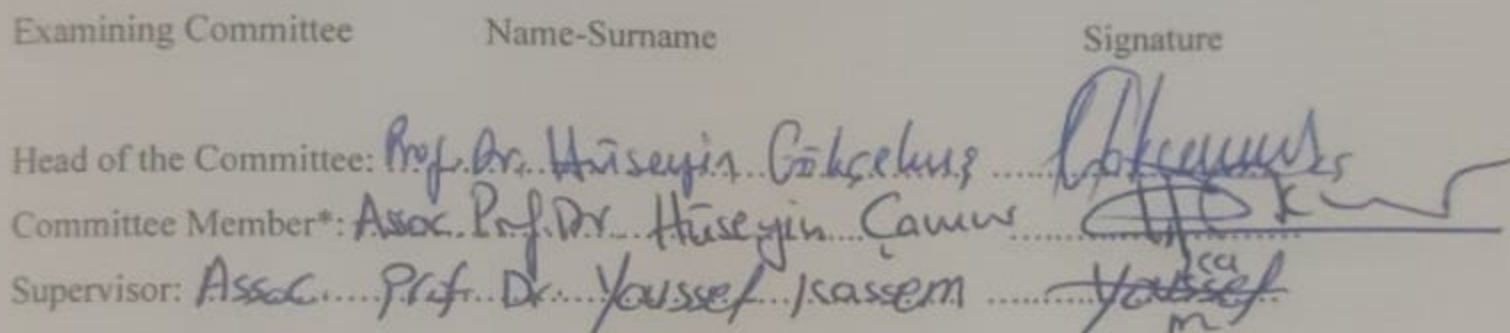 Examining Committee Name-Surname Signature
Head of the Committee: Prof. Dr. Hüseyin Gökçekuş
Committee Member*: Assoc. Prof. Dr. Hüseyin Çamur
Supervisor: Assoc. Prof. Dr. Youssef Kassem Youssef